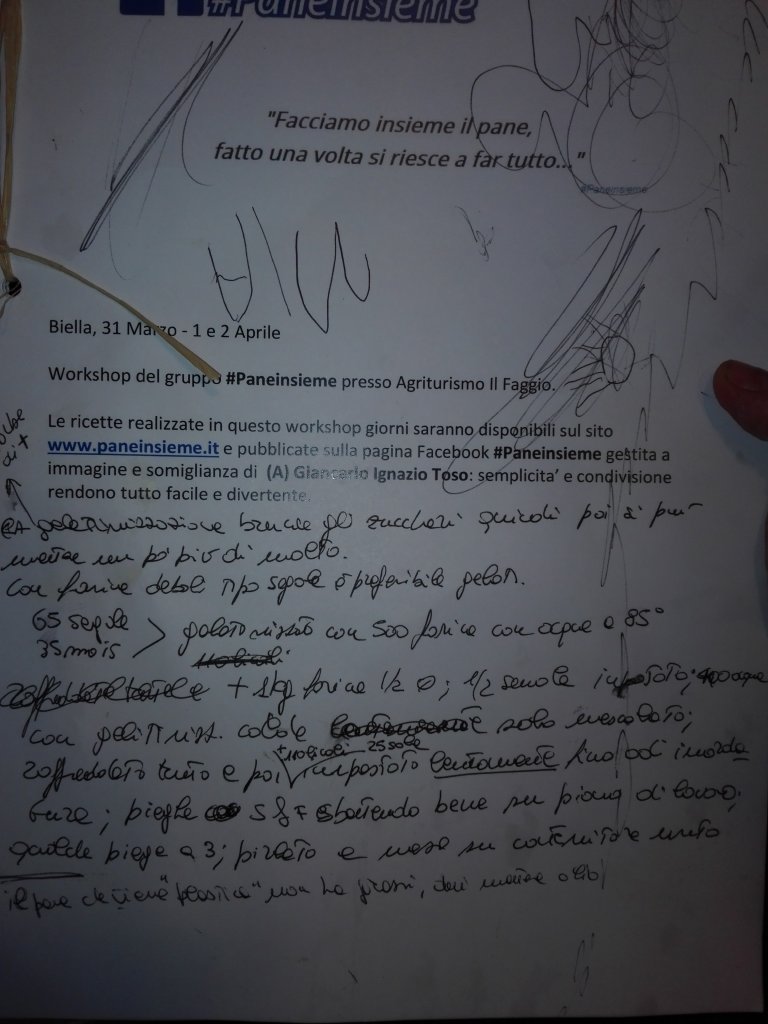 #Paneinsieme
"Facciamo insieme il pane,
fatto una volta si riesce a far tutto..."
#Paneinsieme
Biella, 31 Marzo - 1 e 2 Aprile
Workshop del gruppo #Paneinsieme presso Agriturismo Il Faggio.
Le ricette realizzate in questo workshop giorni saranno disponibili sul sito
www.paneinsieme.it e pubblicate sulla pagina Facebook #Paneinsieme gestita a
immagine e somiglianza di (A) Giancarlo Ignazio Toso: semplicita' e condivisione
rendono tutto facile e divertente.
gelatinizzazione brucia gli zuccheri quindi poi si può
mettere un po più di malto.
con farine deboli tipo segale è preferibile gelat.
65 segale
35 mais > gelatinizzato con 500 farina con acqua a 85°
+ 1kg farina 1/2 0; 1/2 semola impastato;
con gelatinizz. calda solo mescolato;
+ 25 sale
raffreddato tutto e poi impastato lentamente fino ad
pieghe sbattendo bene su piano di lavoro;
qualche piega a 3; pirlato e messo su contenitore unto
il pane che viene "plastica" non ha grassi, devi mettere olio